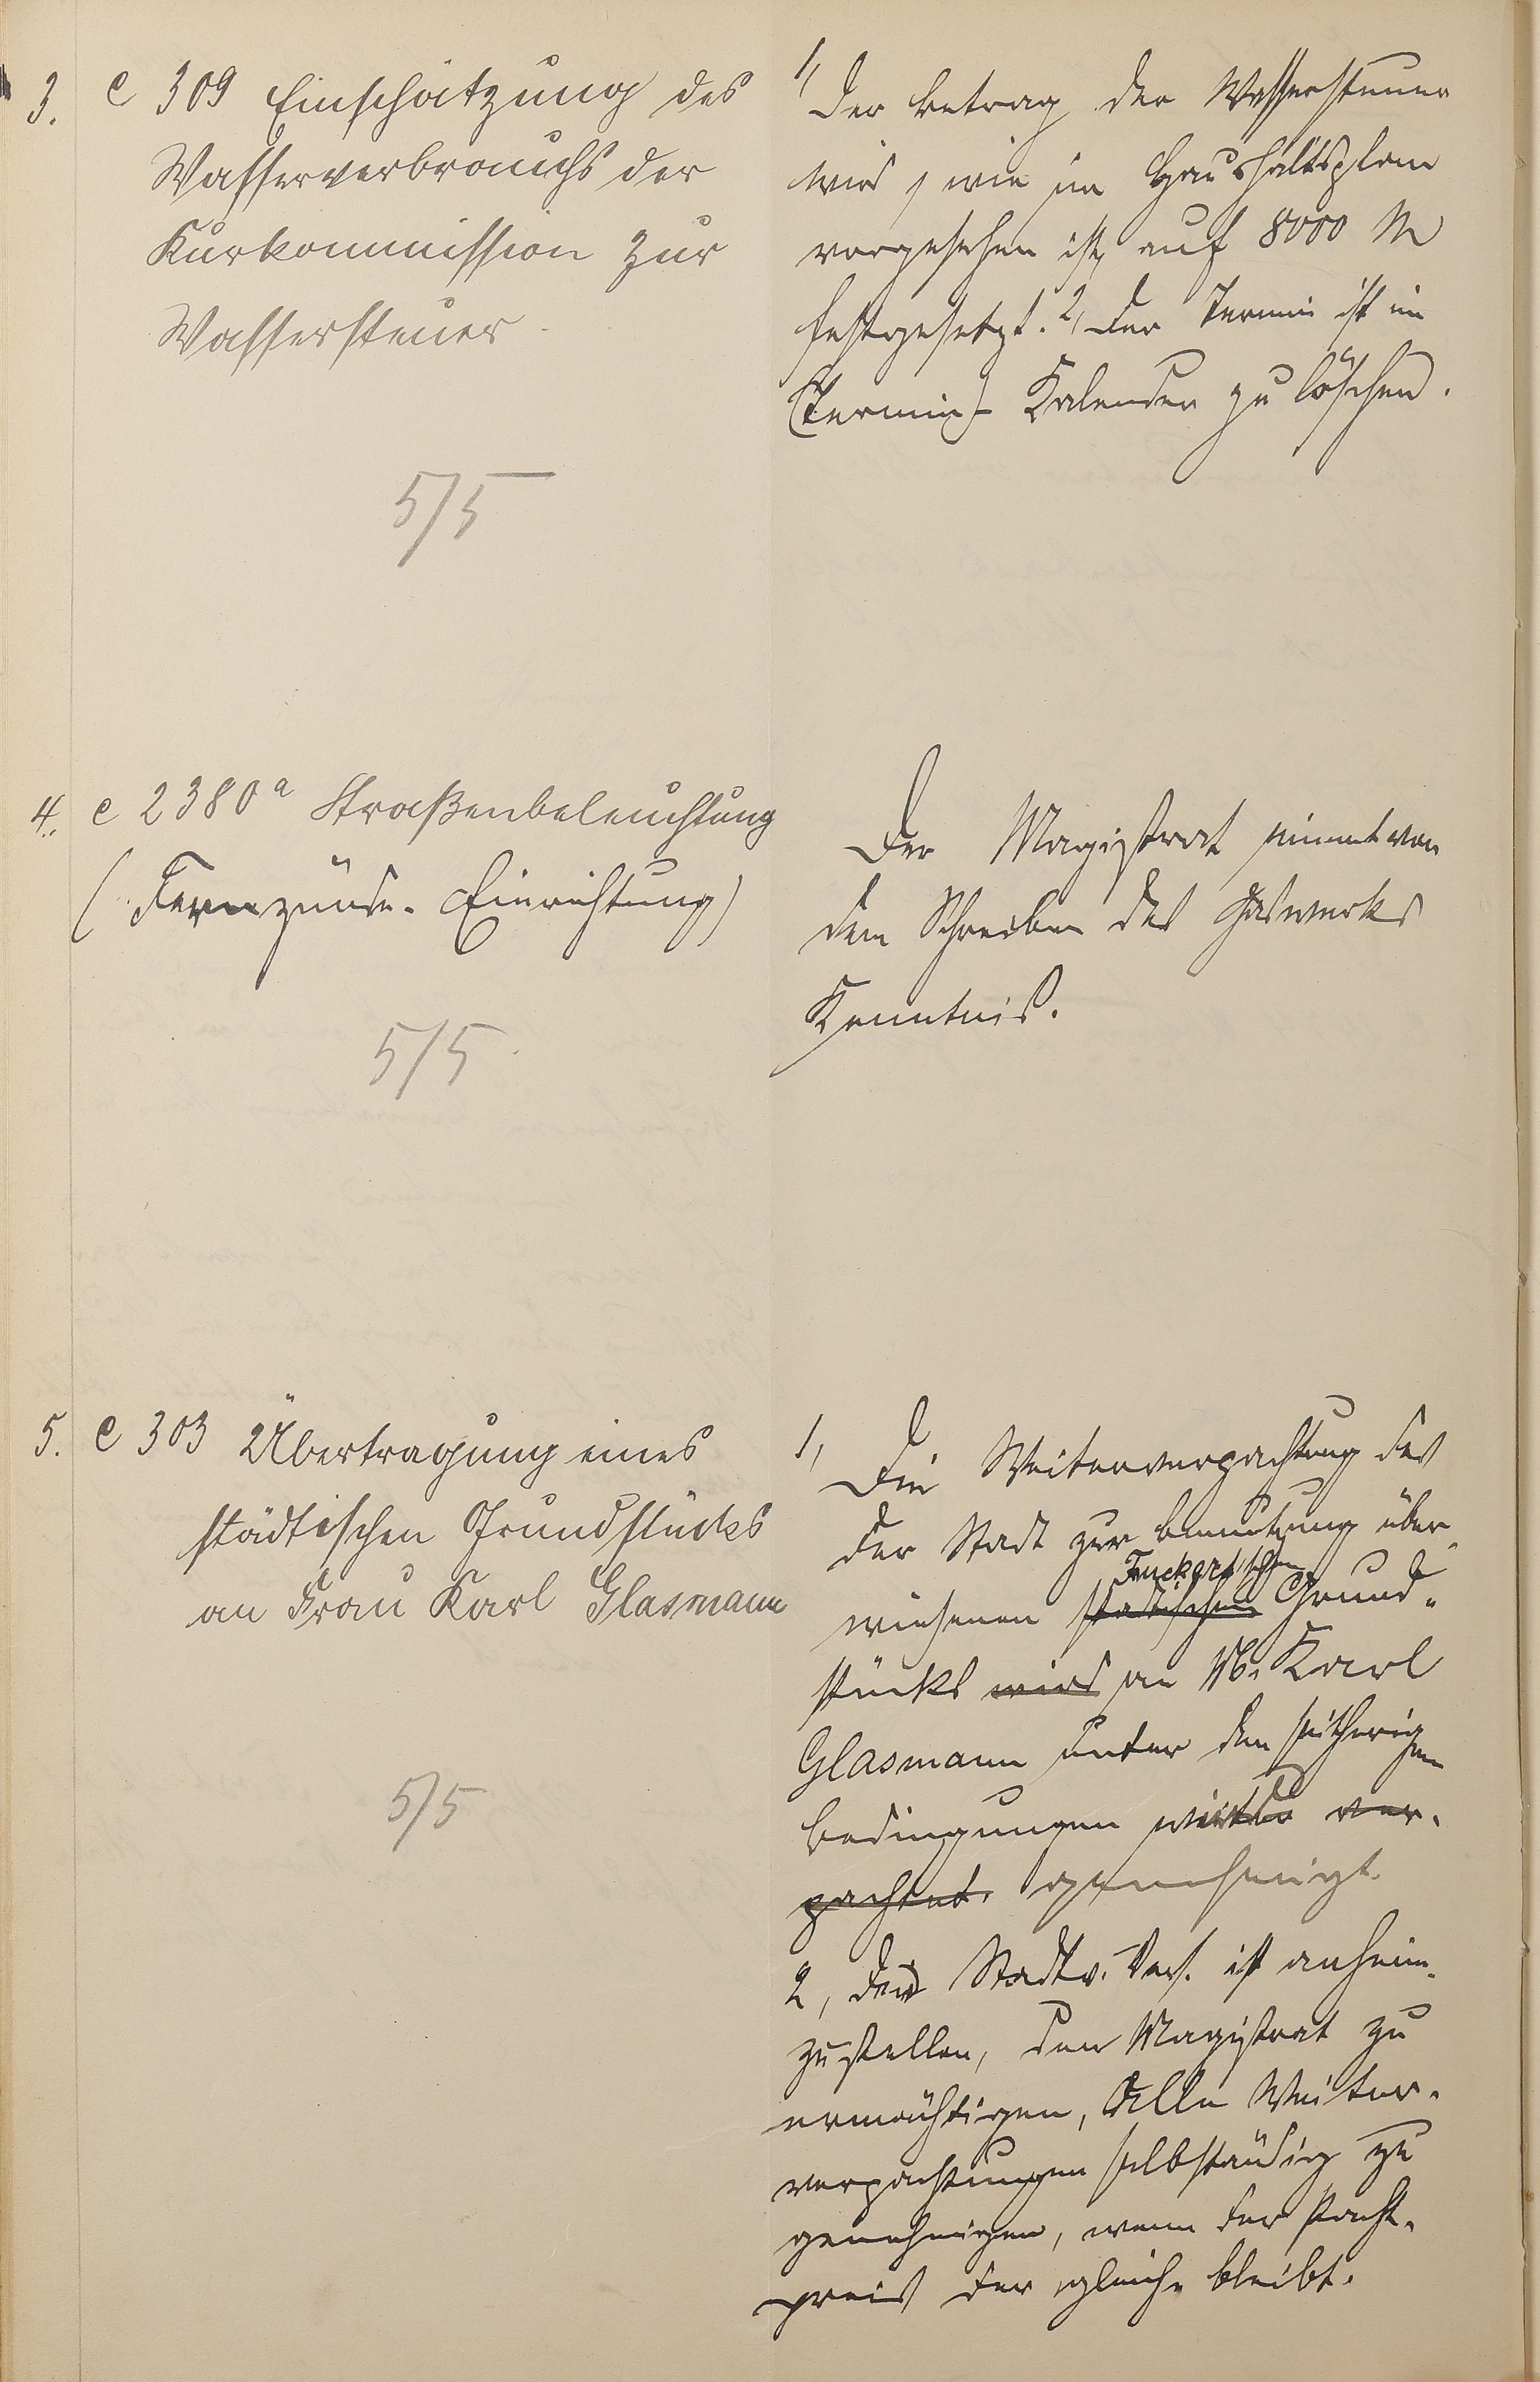 3. e 309 Einschätzung des
Wasserverbrauchs der
Kurkommission zur
Wassersteuer
5/5
1, Der Betrag der Wassersteuer
wird, wie im Haushaltsplan
vorgesehen ist, auf 8000 M
festgesetzt. 2, Der Termin ist im
(Termin)- Kalender zu löschen.
4. e 2380a Straßenbeleuchtung
(Fernzünde-Einrichtung)
5/5
Der Magistrat nimmt von
dem Schreiben des Gaswerks
Kenntnis.
5. e 303 Übertragung eines
städtischen Grundstücks
an Frau Karl Glasmann
5/5
1, Die Weiterverpachtung des
der Stadt zur Benutzung über-
Funckerschen
wiesenen städtischen Grund-
stücks wird an Karl
Glasmann unter den seitherigen
Bedingungen wird ver-
pachtet. genehmigt.
2, Der Stadtv. Vers. ist anheim-
zustellen, den Magistrat zu
ermächtigen, Alle Weiter-
verpachtungen selbständig zu
genehmigen, wenn der Pacht-
preis der gleiche bleibt.